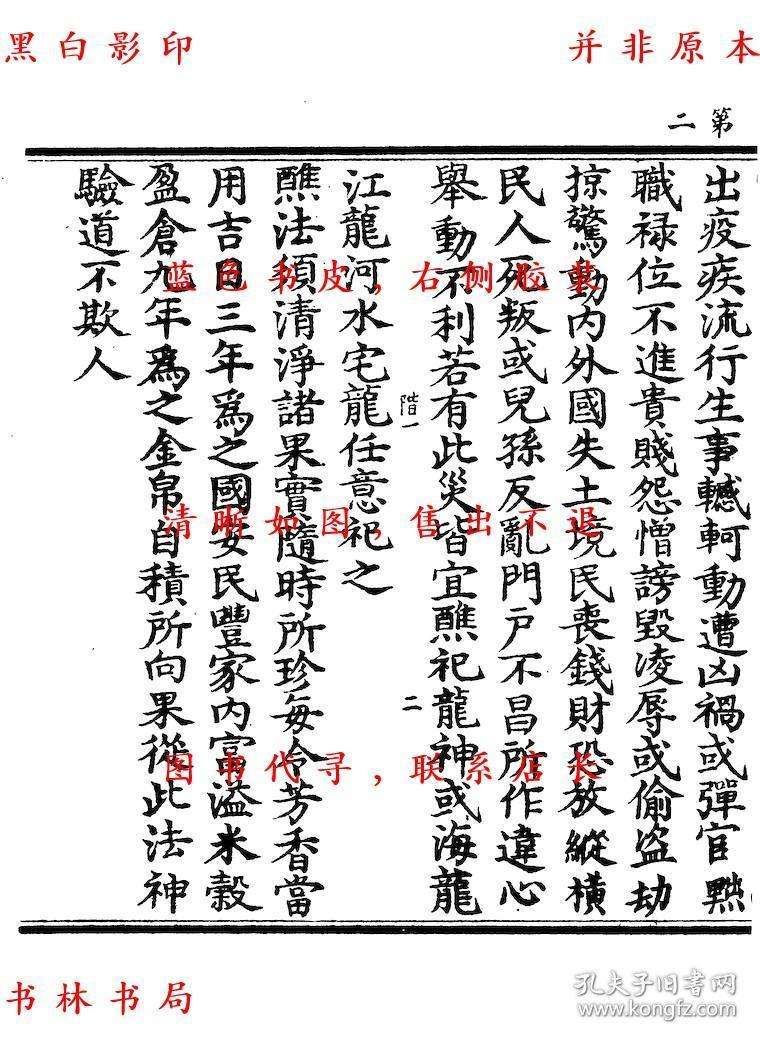 黑白影印
并非原本
第二
出疫疾流行生事轗軻動遭凶禍或彈官黜
職禄位不進貴賤怨憎謗毀凌辱或偷盜劫
掠驚動內外國失土境民喪錢財恐放縱橫
民人死叛或兒孫反亂門戶不昌所作違心
舉動不利若有此災皆宜醮祀龍神或海龍
階一
二
江龍河水宅龍任意祀之
醮法須清淨諸果實隨時所珍每令芳香當
用吉日三年爲之國安民豐家內富溢米穀
盈倉九年爲之金帛自積所向果從此法神
驗道不欺人
蓝色书皮,右侧胶装
清晰如图,售出不退
图书代寻,联系店长
书林书局
孔夫子旧书网
www.kongfz.com